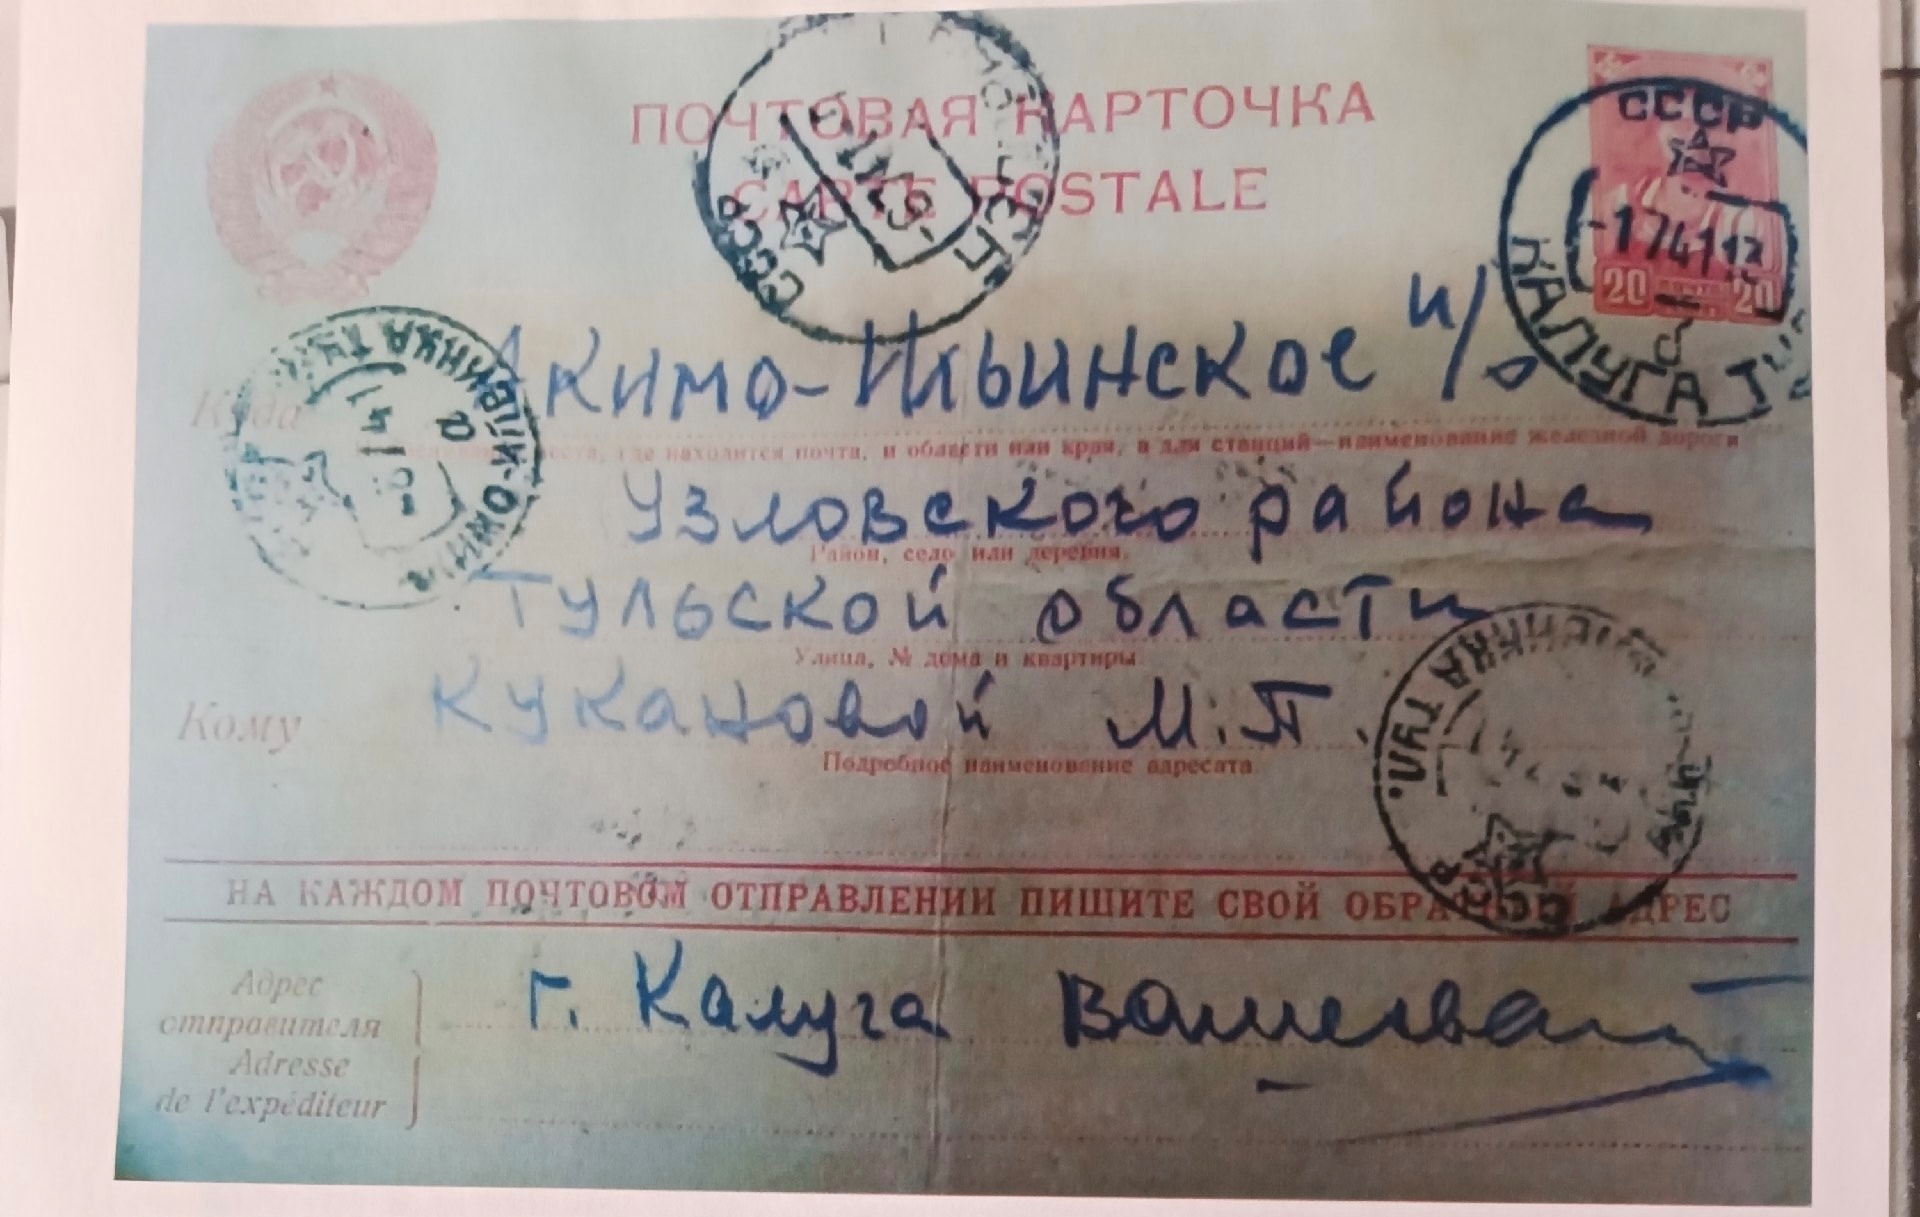 ПОЧТОВАЯ КАРТОЧКА
CARTE POSTALE
СССР
СССР
-1 7 41 13
КАЛУГА ТУЛ
20 20
Куда
Акимо-Ильинское и/о
места, где находится почта, и области или края, а для станций—наименование железной дороги
Узловского района
Район, село или деревня.
Тульской области
Улица, № дома и квартиры.
Кому
Кукановой М.П.
Подробное наименование адресата
ТУЛ.
СССР
НА КАЖДОМ ПОЧТОВОМ ОТПРАВЛЕНИИ ПИШИТЕ СВОЙ ОБРАТНЫЙ АДРЕС
Адрес
отправителя
г. Калуга
Adresse
de l'expéditeur